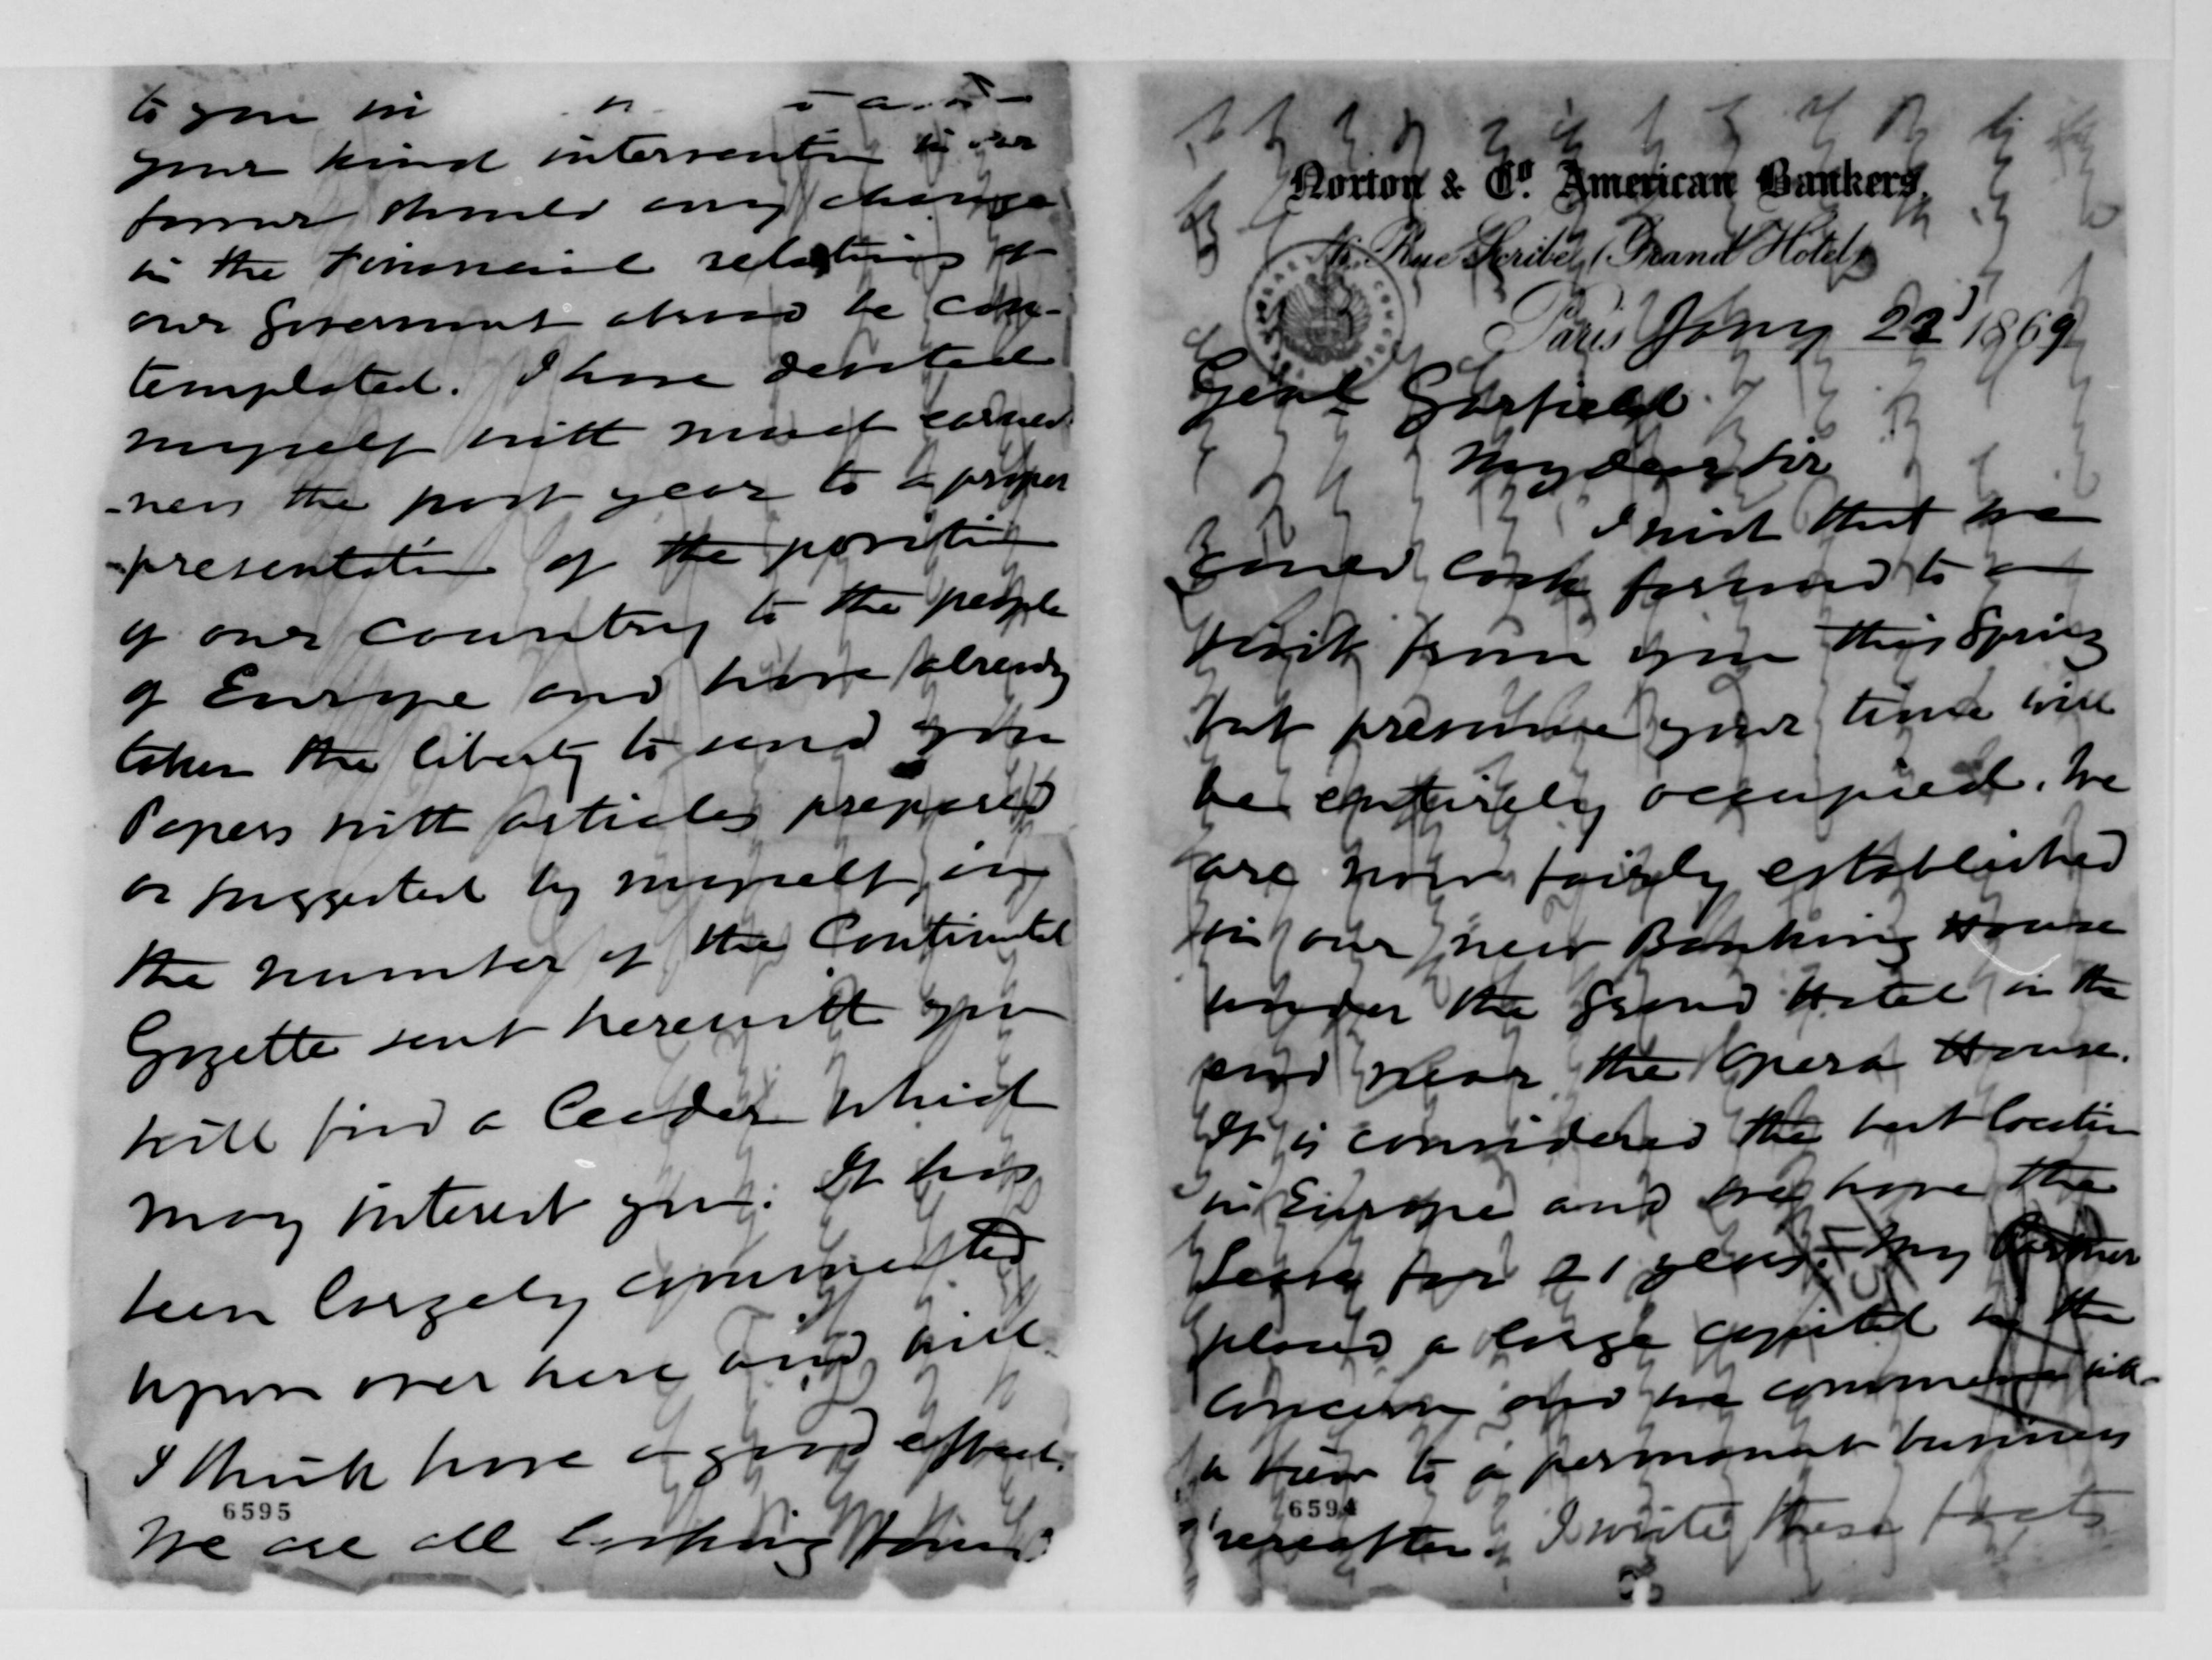 Norton & Co. American Bankers,
Rue Scribe, (Grand Hotel)
Paris Jany 22d 1869
Genl Garfield
My dear Sir
I wish that we
could look forward to a
visit from you this Spring
but presume your time will
be entirely occupied. We
are now fairly established
in our new Banking House
under the Grand Hotel in the
end near the Opera House.
It is considered the best location
in Europe and we have the
Lease for 21 years. My Partner
placed a large capital in the
concern and we commence with
a view to a permanent business
hereafter. I write these facts
6594
to you in
your kind intervention in our
favour should any change
in the Financial relations of
our Goverment abroad be con-
templated. I have devoted
myself with much earnest
-ness the past year to a proper
presentation of the position
of our country to the people
of Europe and have already
taken the liberty to send you
Papers with articles prepared
or suggested by myself, in
the number of the Continental
Gazette sent herewith you
will find a leader which
may interest you. It has
been largely commented
upon over here and will
I think have a good effect.
6595
We are all looking forward